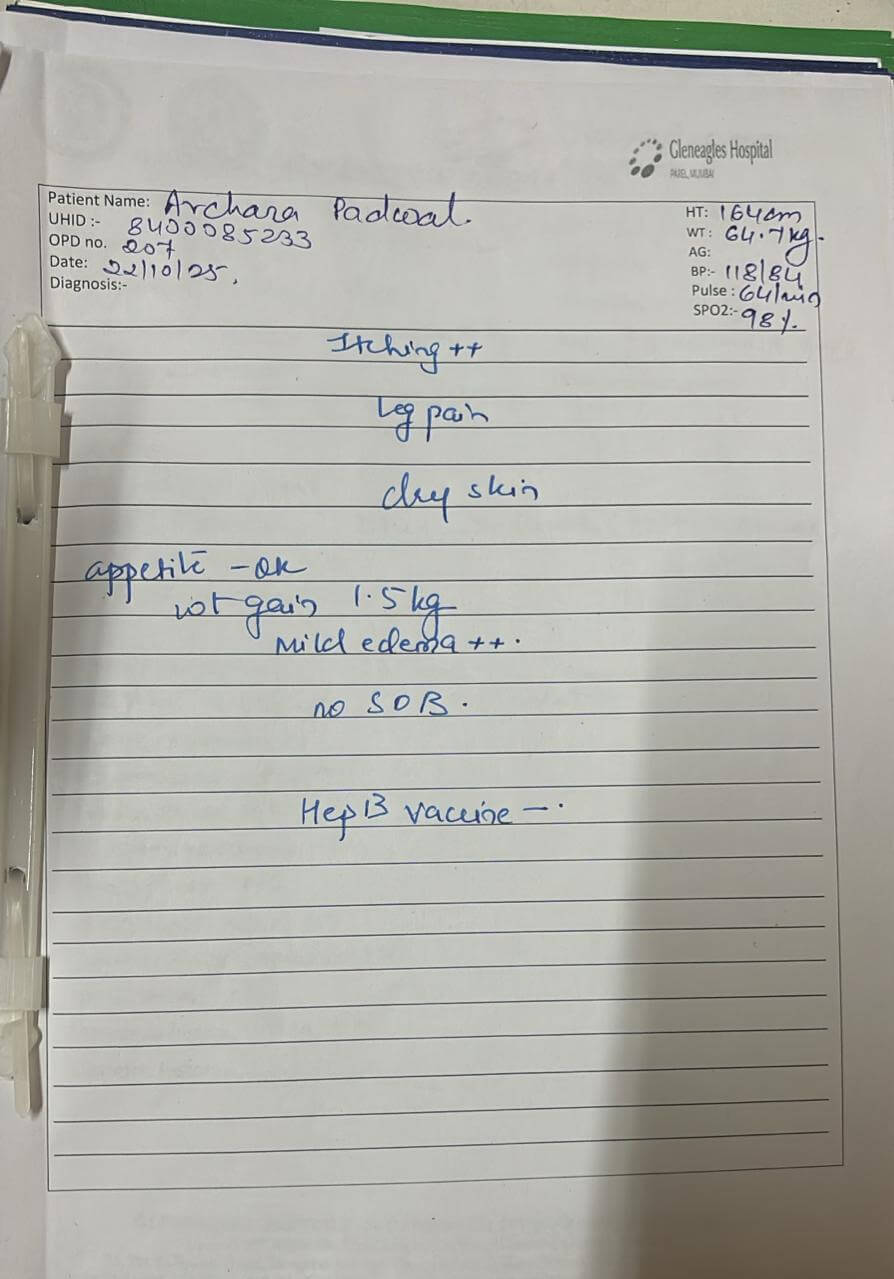 Gleneagles Hospital
PAREL, MUMBAI
Patient Name: Archana Padwal.
UHID :- 8400085233
OPD no. 207
Date: 22/10/25,
Diagnosis:-
HT: 164cm
WT: 64.7kg.
AG:
BP:- 118/84
Pulse: 64/min
SPO2:- 98%.
Itching ++
Leg pain
dry skin
appetite - ok
wt gain 1.5kg
Mild edema ++.
no SOB.
Hep B vaccine -.